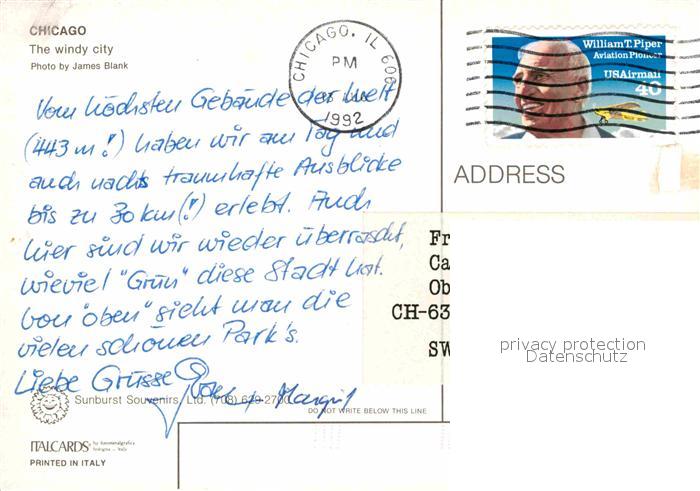 CHICAGO
The windy city
Photo by James Blank
CHICAGO, IL 606
PM
1992
William T. Piper
Aviation Pioneer
USAirmail
40
Vom höchsten Gebäude der Welt
(443 m!) haben wir am Tag und
auch nachts traumhafte Ausblicke
bis zu 30 km (!) erlebt. Auch
hier sind wir wieder überrascht,
wieviel "Grün" diese Stadt hat.
Von "oben" sieht man die
vielen schönen Park's.
Liebe Grüsse
Margrit
ADDRESS
Fr
Ca
Ob
CH-63
SW
privacy protection
Datenschutz
Sunburst Souvenirs, Ltd. (708) 629-2700
DO NOT WRITE BELOW THIS LINE
ITALCARDS by fotometalgrafica
bologna - italy
PRINTED IN ITALY